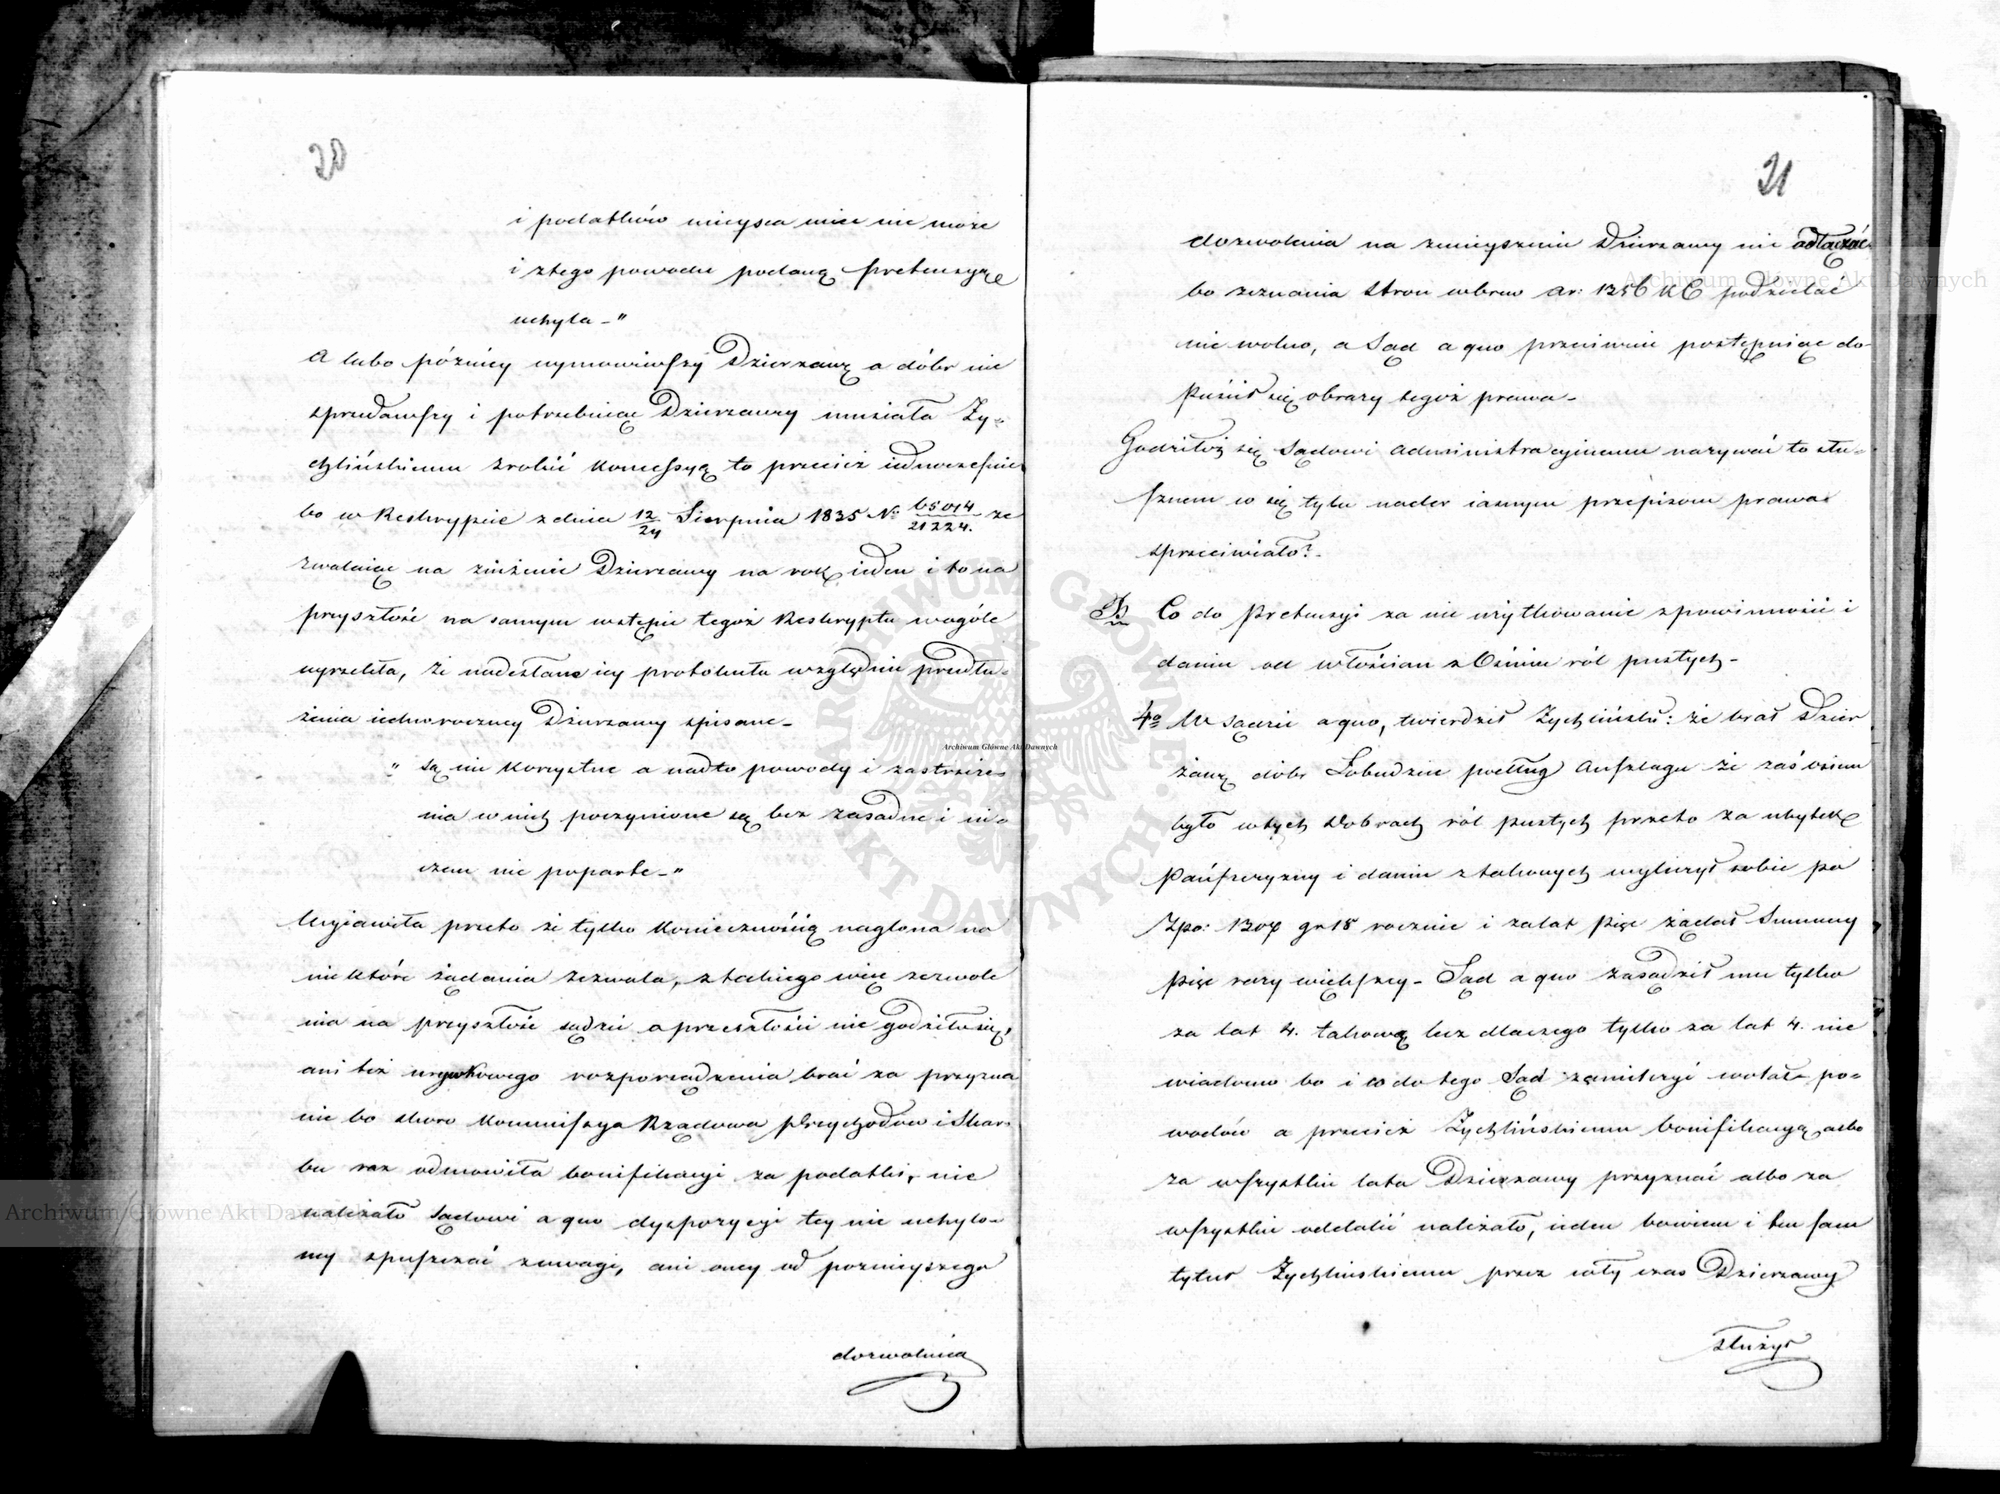 20
i podatków mieysca mieć nie może
i ztego powodu podaną pretensyę
uchyla –"
A lubo późniey wymówiwszy Dzierzawę a dóbr nie
sprzedawszy i potrzebuiąc Dzierzawcy musiała Zy-
chlińskiemu zrobić koncessyą to przecież iednocześnie
bo w Reskrypcie z dnia 12/24 Sierpnia 1835 No 65014/21224. ze
zwalaiąc na zniżenie Dzierzawy na rok ieden i to na
przyszłość na samym wstępie tegoż Reskryptu wogóle
wyrzekła, że nadesłane iey protokuła względnie przedłu-
żenia iednoroczney Dzierzawy spisane –
" są nie korzystne a nadto powody i zastrzeże-
nia w nich poczynione są bez zasadne i ni-
czem nie poparte –"
Wyiawiła przeto że tylko koniecznością naglona na
niektóre żądania zezwala, z takiego więc zezwole
nia na przyszłość sądzić o przeszłości nie godziło się,
ani też urywkowego rozporządzenia brać za przyzna
nie bo skoro Kommissya Rządowa Przychodów i Skar-
bu raz odmówiła bonifikacyi za podatki, nie
należało Sądowi a quo dyspozycyi tey nie uchylo-
ney spuszczać z uwagi, ani oney od poznieyszego
dozwolenia
21
dozwolenia na zmnieyszenie Dzierzawy nie odłączać
bo zeznania stron wbrew Ar: 1356 KC podzielać
nie wolno, a Sąd a quo przeciwnie postępuiąc do-
puścił się obrazy tegoż prawa –
Godziłoż się Sądowi Administracyinemu nazywać to słu-
sznem co się tylu nader iasnym przepisom prawa
sprzeciwiało? –
B. Co do Pretensyi za nie użytkowanie z powinności i
danin od włościan z Ośmiu ról pustych –
4o W Sądzie a quo, twierdził Zychliński: że brał Dzier
żawę dóbr Łobudzic podług Anszlagu że zaś ośm
było w tych Dobrach ról pustych przeto za ubytek
Pańszczyzny i danin z takowych wyliczył sobie po
Złpo: 1307 gr 18 rocznie i za lat pięć żądał Summy
pięć razy większey – Sąd a quo zasądził mu tylko
za lat 4. takową lecz dlaczego tylko za lat 4. nie
wiadomo bo i co do tego Sąd zamilczyć wolał po-
wodów a przecież Zychlińskiemu bonifikacyą albo
za wszystkie lata Dzierzawy przyznać albo za
wszystkie oddalić należało, ieden bowiem i ten sam
tytuł Zychlińskiemu przez cały czas Dzierzawy
służył
Archiwum Główne Akt Dawnych
ARCHIWUM GŁÓWNE AKT DAWNYCH